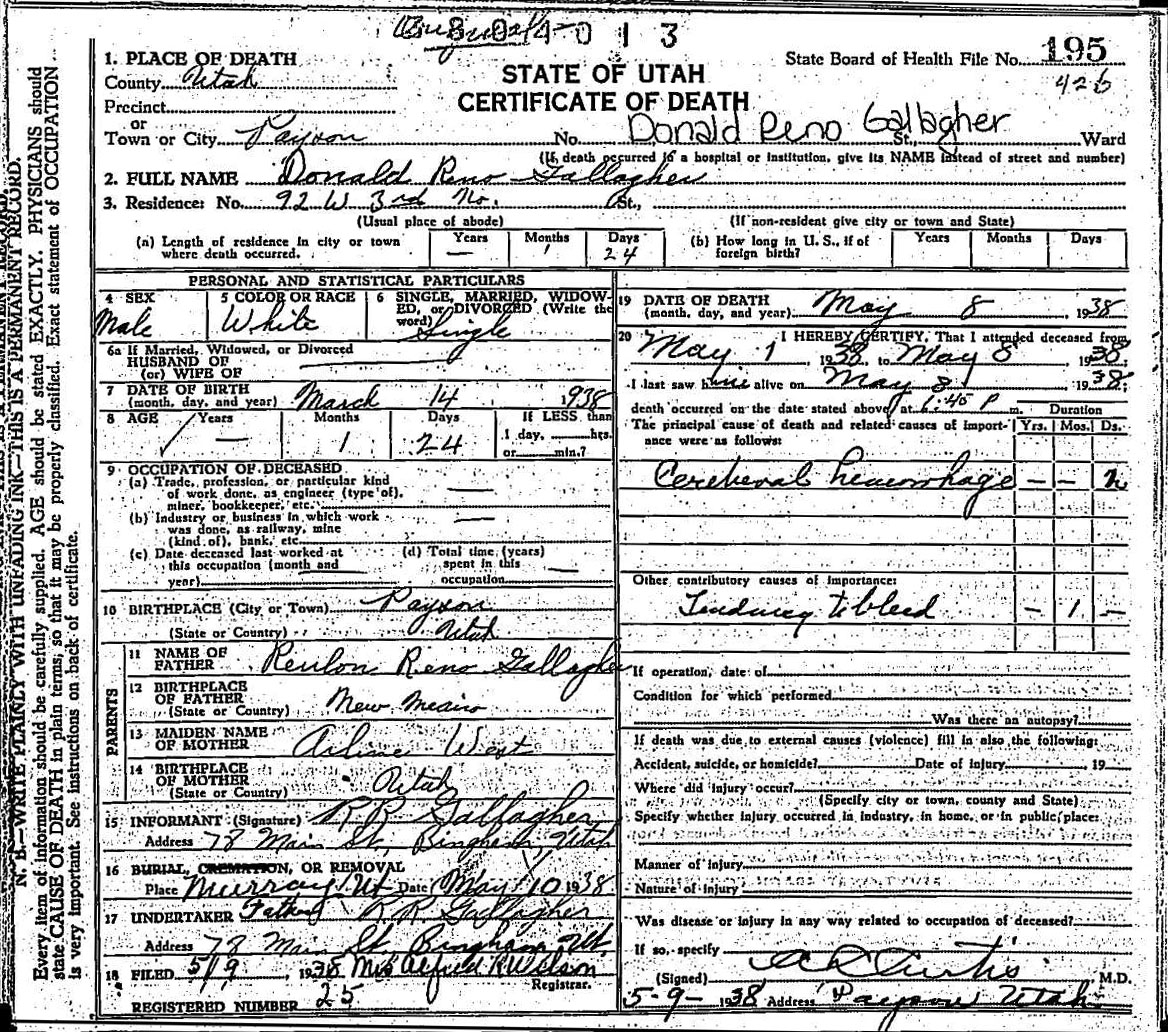 3804013
1. PLACE OF DEATH
State Board of Health File No. 195
County Utah
STATE OF UTAH
426
Precinct
CERTIFICATE OF DEATH
or
Town or City Payson No. Donald Reno Gallagher St., Ward
(If death occurred in a hospital or institution, give its NAME instead of street and number)
2. FULL NAME Donald Reno Gallagher
3. Residence: No. 92 W 3rd No. St.,
(Usual place of abode) (If non-resident give city or town and State)
(a) Length of residence in city or town where death occurred. Years — Months 1 Days 24
(b) How long in U. S., if of foreign birth? Years Months Days
PERSONAL AND STATISTICAL PARTICULARS
4 SEX Male
5 COLOR OR RACE White
6 SINGLE, MARRIED, WIDOWED, or DIVORCED (Write the word) Single
6a If Married, Widowed, or Divorced
HUSBAND OF
(or) WIFE OF
7 DATE OF BIRTH (month, day, and year) March 14 1938
8 AGE Years — Months 1 Days 24 If LESS than
1 day, hrs.
or min.?
9 OCCUPATION OF DECEASED
(a) Trade, profession, or particular kind
of work done, as engineer (type of),
miner, bookkeeper, etc. —
(b) Industry or business in which work
was done, as railway, mine
(kind of), bank, etc. —
(c) Date deceased last worked at
this occupation (month and
year)
(d) Total time (years)
spent in this
occupation —
10 BIRTHPLACE (City or Town) Payson
(State or Country) Utah
PARENTS
11 NAME OF FATHER Reulon Reno Gallagher
12 BIRTHPLACE OF FATHER
(State or Country) New Mexico
13 MAIDEN NAME OF MOTHER Arline West
14 BIRTHPLACE OF MOTHER
(State or Country) Utah
15 INFORMANT (Signature) R. R. Gallagher
Address 78 Main St, Bingham, Utah
16 BURIAL, CREMATION, OR REMOVAL
Place Murray Ut Date May 10 1938
17 UNDERTAKER Father R. R. Gallagher
Address 78 Main St Bingham, Ut.
18 FILED 5/9, 1938 Mrs Alfred R Wilson
Registrar.
REGISTERED NUMBER 25
19 DATE OF DEATH
(month, day, and year) May 8, 1938
20 I HEREBY CERTIFY, That I attended deceased from
May 1 1938 to May 8 1938;
I last saw him alive on May 8, 1938;
death occurred on the date stated above, at 1:45 P m. Duration
The principal cause of death and related causes of importance were as follows: Yrs. Mos. Ds.
Cerebreval hemorrhage — — 2
Other contributory causes of importance:
Tendincy to bleed — 1 —
If operation, date of
Condition for which performed
Was there an autopsy?
If death was due to external causes (violence) fill in also the following:
Accident, suicide, or homicide? Date of injury 19
Where did injury occur?
(Specify city or town, county and State)
Specify whether injury occurred in industry, in home, or in public place:
Manner of injury
Nature of injury
Was disease or injury in any way related to occupation of deceased?
If so, specify
(Signed) A L Curtis M.D.
5-9-1938 Address Payson Utah
N. B.—WRITE PLAINLY WITH UNFADING INK—THIS IS A PERMANENT RECORD.
Every item of information should be carefully supplied. AGE should be stated EXACTLY. PHYSICIANS should
state CAUSE OF DEATH in plain terms, so that it may be properly classified. Exact statement of OCCUPATION
is very important. See instructions on back of certificate.